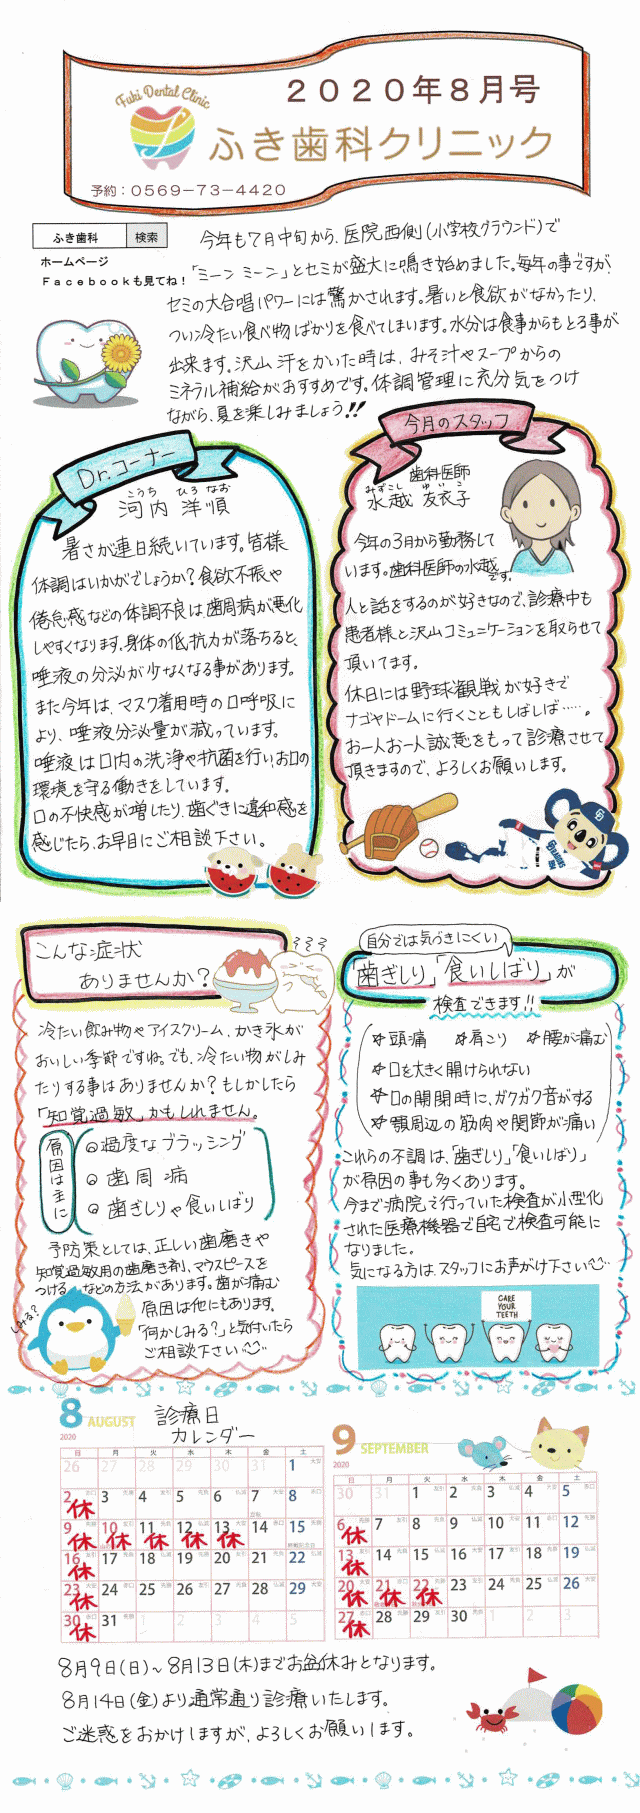 Fuki Dental Clinic
2020年8月号
ふき歯科クリニック
予約：0569-73-4420
ふき歯科 検索
ホームページ
Facebookも見てね！
今年も7月中旬から、医院西側(小学校グラウンド)で
「ミーン ミーン」とセミが盛大に鳴き始めました。毎年の事ですが、
セミの大合唱パワーには驚かされます。暑いと食欲がなかったり、
つい冷たい食べ物ばかりを食べてしまいます。水分は食事からもとる事が
出来ます。沢山汗をかいた時は、みそ汁やスープからの
ミネラル補給がおすすめです。体調管理に充分気をつけ
ながら、夏を楽しみましょう!!
Dr.コーナー
こうち ひろ なお
河内 洋順
暑さが連日続いています。皆様
体調はいかがでしょうか？食欲不振や
倦怠感などの体調不良は、歯周病が悪化
しやすくなります。身体の低抗力が落ちると、
唾液の分泌が少なくなる事があります。
また今年は、マスク着用時の口呼吸に
より、唾液分泌量が減っています。
唾液は口内の洗浄や抗菌を行い、お口の
環境を守る働きをしています。
口の不快感が増したり、歯ぐきに違和感を
感じたら、お早目にご相談下さい。
今月のスタッフ
歯科医師
みずこし ゆいこ
水越 友衣子
今年の3月から勤務して
います。歯科医師の水越
です。
人と話をするのが好きなので、診療中も
患者様と沢山コミュニケーションを取らせて
頂いてます。
休日には野球観戦が好きで
ナゴヤドームに行くこともしばしば……。
お一人お一人誠意をもって診療させて
頂きますので、よろしくお願いします。
こんな症状
ありませんか？
冷たい飲み物やアイスクリーム、かき氷が
おいしい季節ですね。でも、冷たい物がしみ
たりする事はありませんか？もしかしたら
「知覚過敏」かもしれません。
原因は主に
過度なブラッシング
歯周病
歯ぎしりや食いしばり
予防策としては、正しい歯磨きや
知覚過敏用の歯磨き剤、マウスピースを
つける などの方法があります。歯が痛む
原因は他にもあります。
「何かしみる？」と気付いたら
ご相談下さい
しみる？
自分では気づきにくい
「歯ぎしり」「食いしばり」が
検査できます!!
☆頭痛 ☆肩こり ☆腰が痛む
☆口を大きく開けられない
☆口の開閉時に、ガクガク音がする
☆顎周辺の筋肉や関節が痛い
これらの不調は、「歯ぎしり」「食いしばり」
が原因の事も多くあります。
今まで病院で行っていた検査が小型化
された医療機器で自宅で検査可能に
なりました。
気になる方は、スタッフにお声がけ下さい
CARE
YOUR
TEETH
診療日
カレンダー
8 AUGUST
2020
日 月 火 水 木 金 土
26 27 28 29 30 31 1
2 休 3 4 5 6 7 8
9 休 10 休 11 休 12 休 13 休 14 15
16 休 17 18 19 20 21 22
23 休 24 25 26 27 28 29
30 休 31 1 2 3 4 5
9 SEPTEMBER
2020
日 月 火 水 木 金 土
30 31 1 2 3 4 5
6 休 7 8 9 10 11 12
13 休 14 15 16 17 18 19
20 休 21 休 22 休 23 24 25 26
27 休 28 29 30 1 2 3
8月9日(日)～8月13日(木)までお盆休みとなります。
8月14日(金)より通常通り診療いたします。
ご迷惑をおかけしますが、よろしくお願いします。